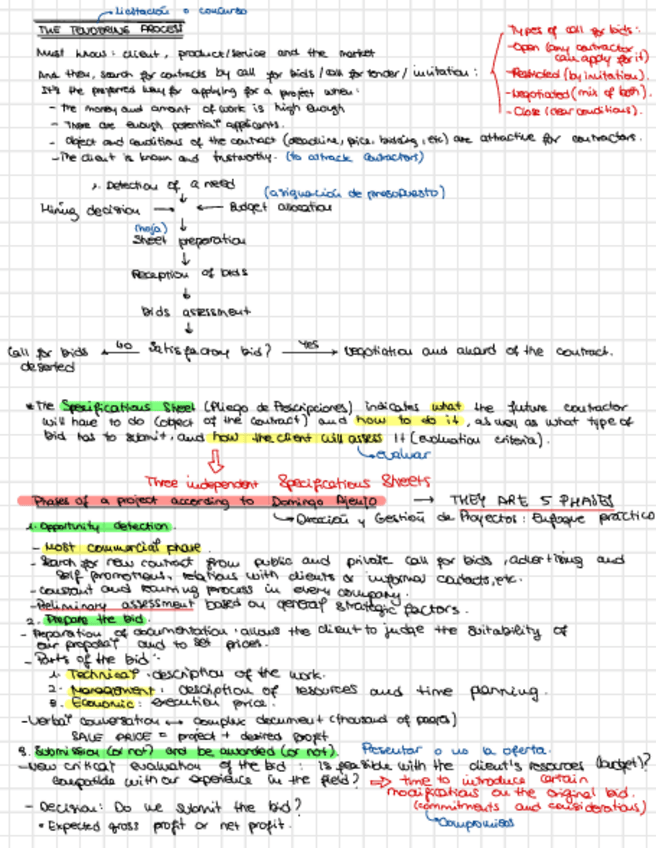 Licitación o concurso
THE TENDERING PROCESS
Must know: client, product/service and the market
And then, search for contracts by call for bids / call for tender / invitation:
It's the preferred way for applying for a project when:
- The money and amount of work is high enough
- There are enough potential applicants.
- Object and conditions of the contract (deadline, price, bidding, etc) are attractive for contractors.
- The client is known and trustworthy. (to attrack contractors)
Types of call for bids:
- Open (any contractor can apply for it)
- Restricted (by invitation).
- Negotiated (mix of both).
- Close (clear conditions).
1. Detection of a need
(asignación de presupuesto)
Hiring decision → ← Budget allocation
(hoja)
Sheet preparation
Reception of bids
bids assessment
Call for bids deserted ← NO Satisfactory bid? YES → Negotiation and award of the contract.
* The Specifications Sheet (Pliego de Prescripciones) indicates what the future contractor
will have to do (object of the contract) and how to do it, as well as what type of
bid has to submit, and how the client will assess it (evaluation criteria).
evaluar
Three independent Specifications Sheets
Phases of a project according to Domingo Ajenjo → THEY ARE 5 PHASES
Dirección y Gestión de Proyectos: Enfoque práctico
1. Opportunity detection.
- Most commercial phase.
- Search for new contract from public and private call for bids, advertising and
self promotions, relations with clients or informal contacts, etc.
- Constant and learning process in every company.
- Preliminary assessment based on general strategic factors.
2. Prepare the bid.
- Preparation of documentation: allows the client to judge the suitability of
our proposal and to set prices.
- Parts of the bid:
1. Technical: description of the work.
2. Management: description of resources and time planning.
3. Economic: execution price.
- Verbal conversation ↔ complex document (thousand of pages)
SALE PRICE = project + desired profit
3. Submission (or not) and be awarded (or not). Presentar o no la oferta.
- New critical evaluation of the bid: is feasible with the client's resources (budget)?
compatible with our experience in the field? ⇒ time to introduce certain
modifications on the original bid.
(commitments and considerations)
Compromisos
- Decision: Do we submit the bid?
• Expected gross profit or net profit.